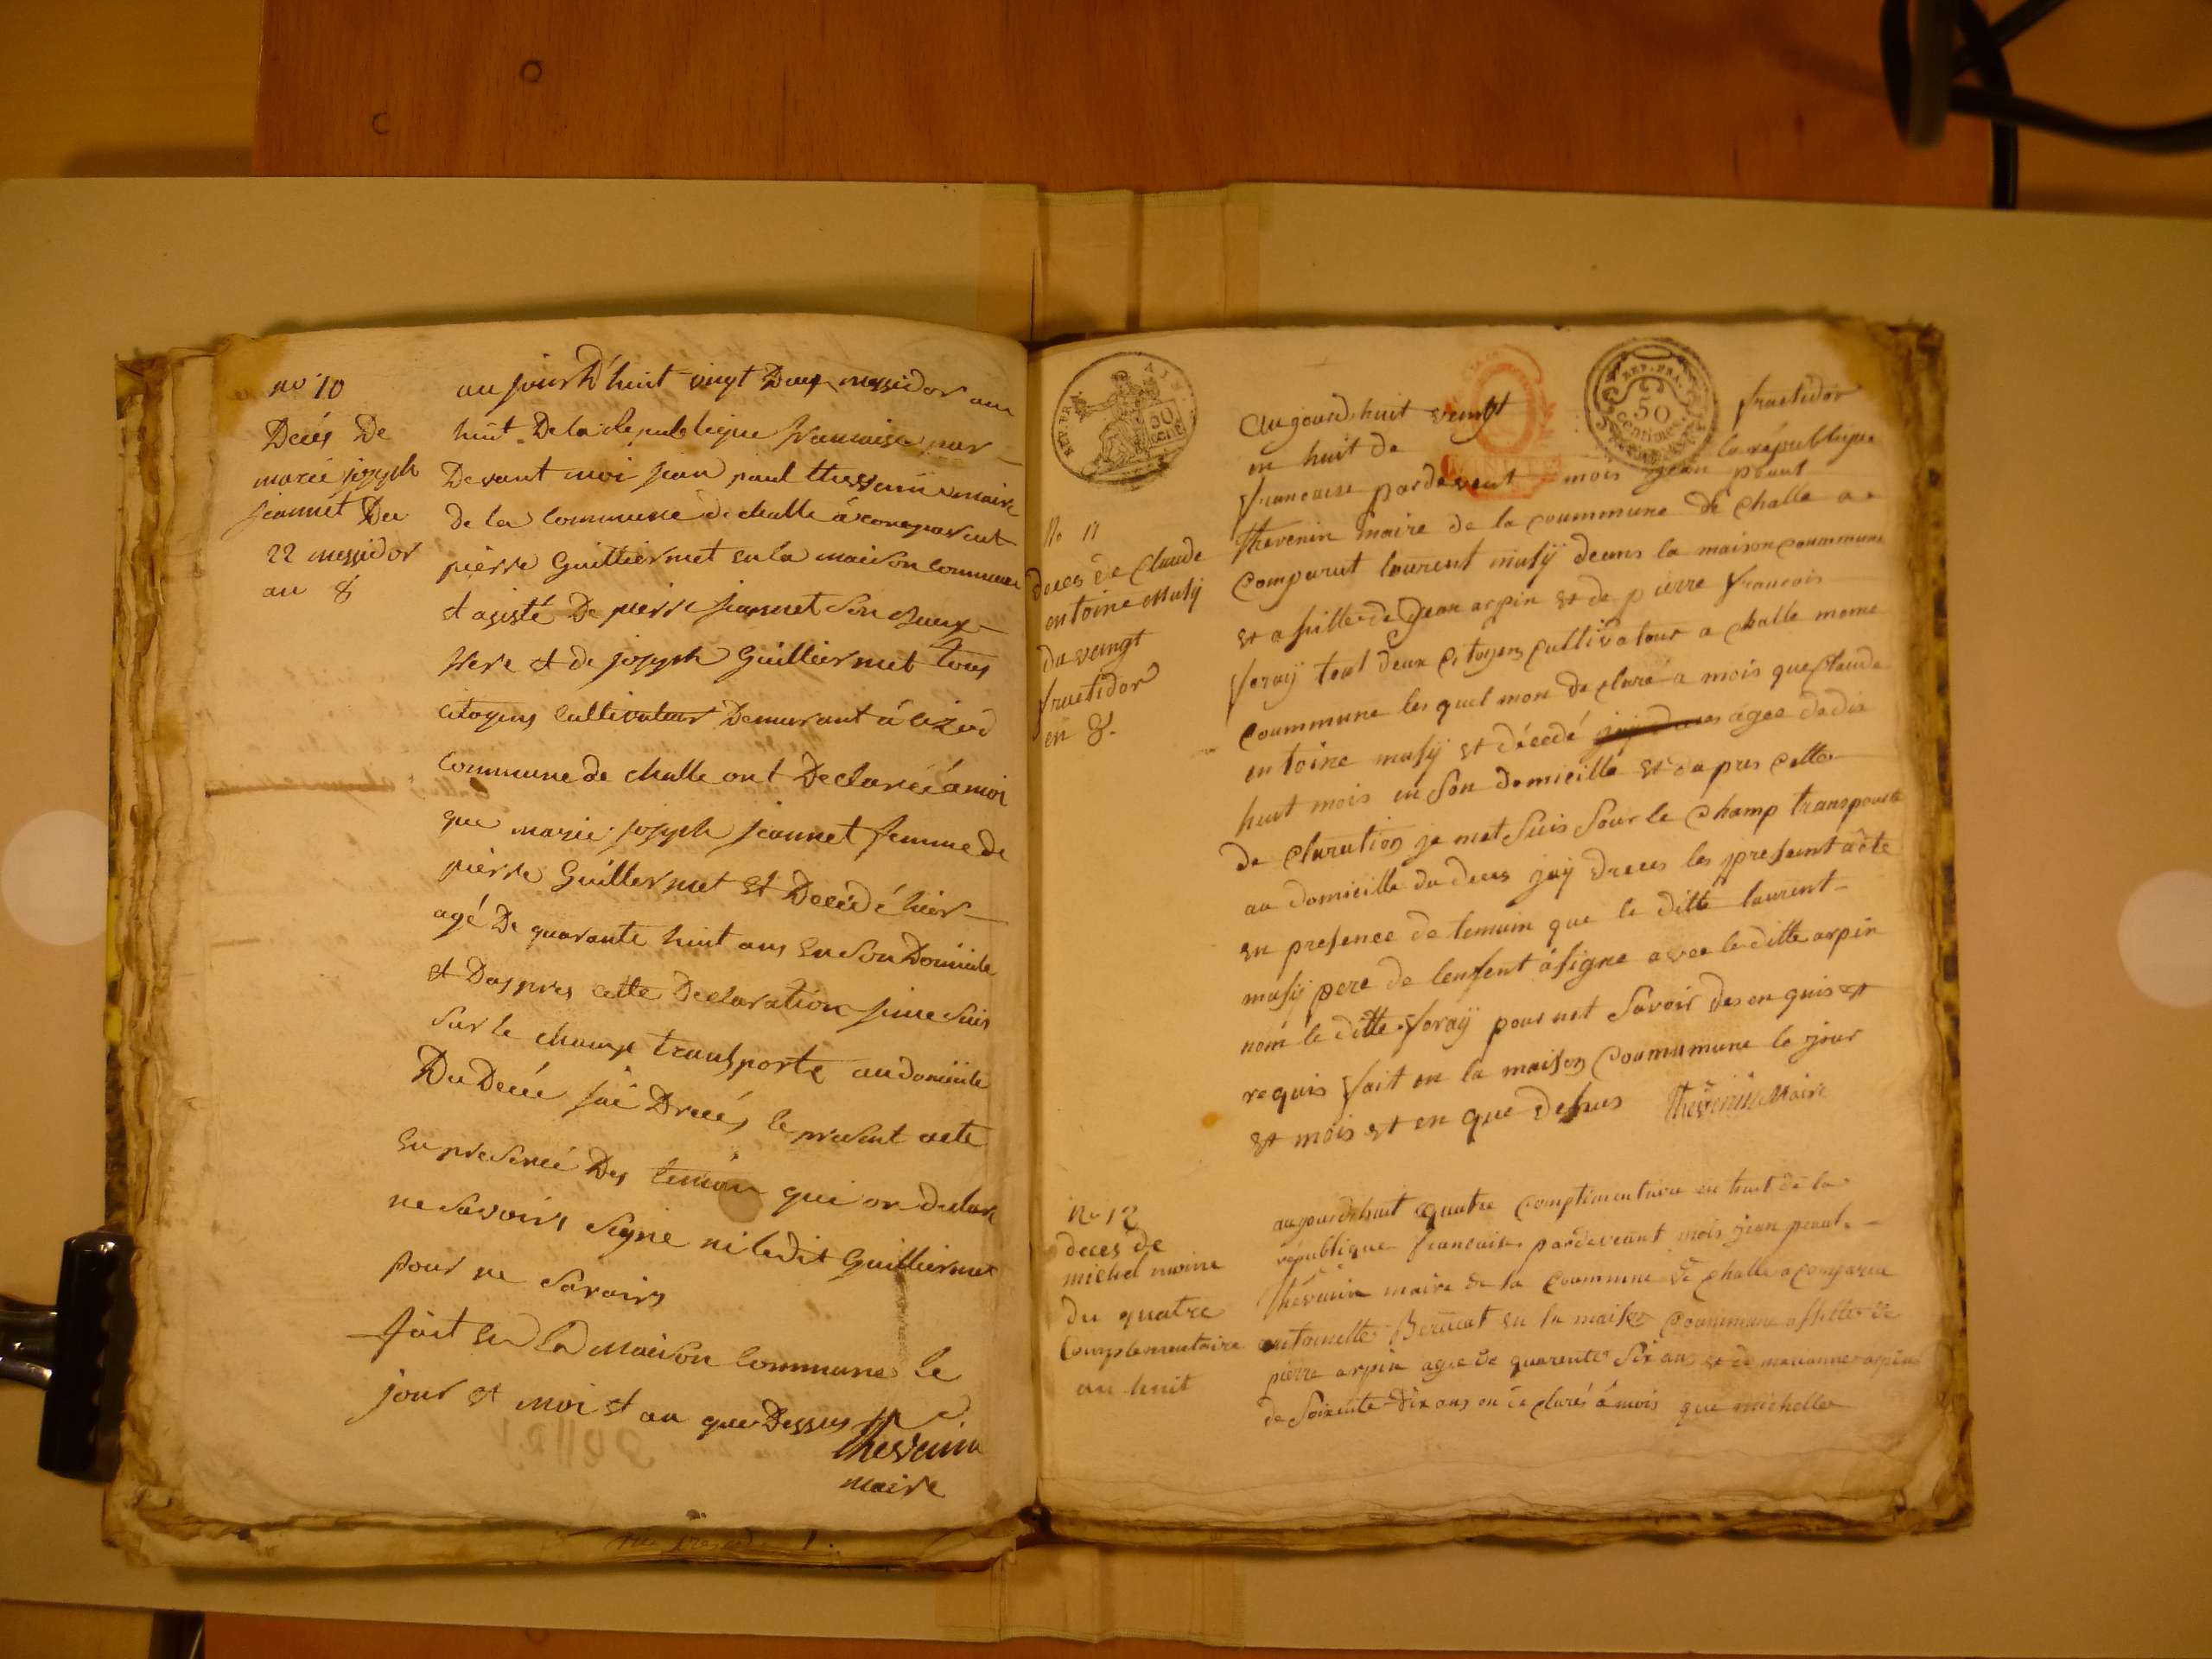 no 10
Decés De
marie joseph
jeannet Du
22 messidor
an 8
au jourD'huit vingt Deux messidor an
huit De la Republique francaise par
Devant moi jean paul thevenin maire
de la Commune de challe à comparut
pierre Guilliermet en la maison commune
et asisté De pierre jeannet son Beaux
frere et de joseph Guilliermet tous
citoyens cultivateur Demurant à
Commune de challe ont Declareé à moi
que marie joseph jeannet femme de
pierre Guillermet et Decédé hier
agé De quarante huit ans en son Domicile
et Daspres cette Declaration je me suis
sur le champ transporte au domicile
Du Decée jai Dreés le present acte
en presence Des temoin qui on declare
ne savoirs signe ni ledit Guilliermet
pour ne savoirs
fait en la Maison Commune le
jour et moi et an que Dessus
thevenin
maire
REP. FRA.
50
CENT.
REP. FRA.
50
Centimes
No 11
deces de Claude
entoine Musy
du vengt
fructidor
en 8.
Augourdhuit vengt fructidor
en huit de la république
francaise pardevent mois jean peaut
Thevenin maire de la coummune de challe a
comparut laurent musÿ deans la maison coummune
et a sisster de Jean arpin et de pierre francois
foraÿ tout deux citoyens cultivatour a challe meme
coummune les quel mon declaré a mois que claude
entoine musÿ et décédé agee de dix
huit mois en son domicille et dapres cette
declaration je met suis sour le champ transpourte
au domicille du deces jaÿ drees les present acte
en presence de temuin que le ditte laurent
musÿ pere de lenfent à signe avec le ditte arpin
nom le ditte foraÿ pour net savoir des en quis et
requis fait en la maison coummune le jour
et mois et en que desus thevenin Maire
No 12
deces de
michel
du quatre
Complementaire
an huit
augourdshuit quatre complimentaire en huit de la
republique francaise pardeveant mois jean peaut
Thevenin maire de la coummune de challe a comparu
antoinette en la maison coummune assister de
pierre arpin agee de quarente six ans et de marianne arpin
de soixente dix ans on declarés à mois que michelle